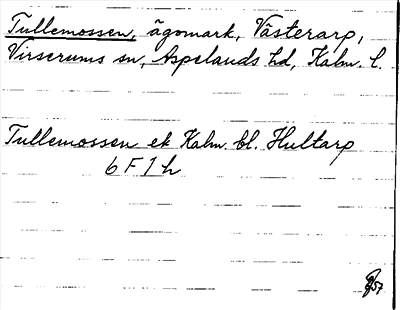 Tullemossen, ägomark, Västerarp,
Virserums sn, Aspelands hd, Kalm. l.
Tullemossen ek Kalm. bl. Hultarp
6 F 1 h